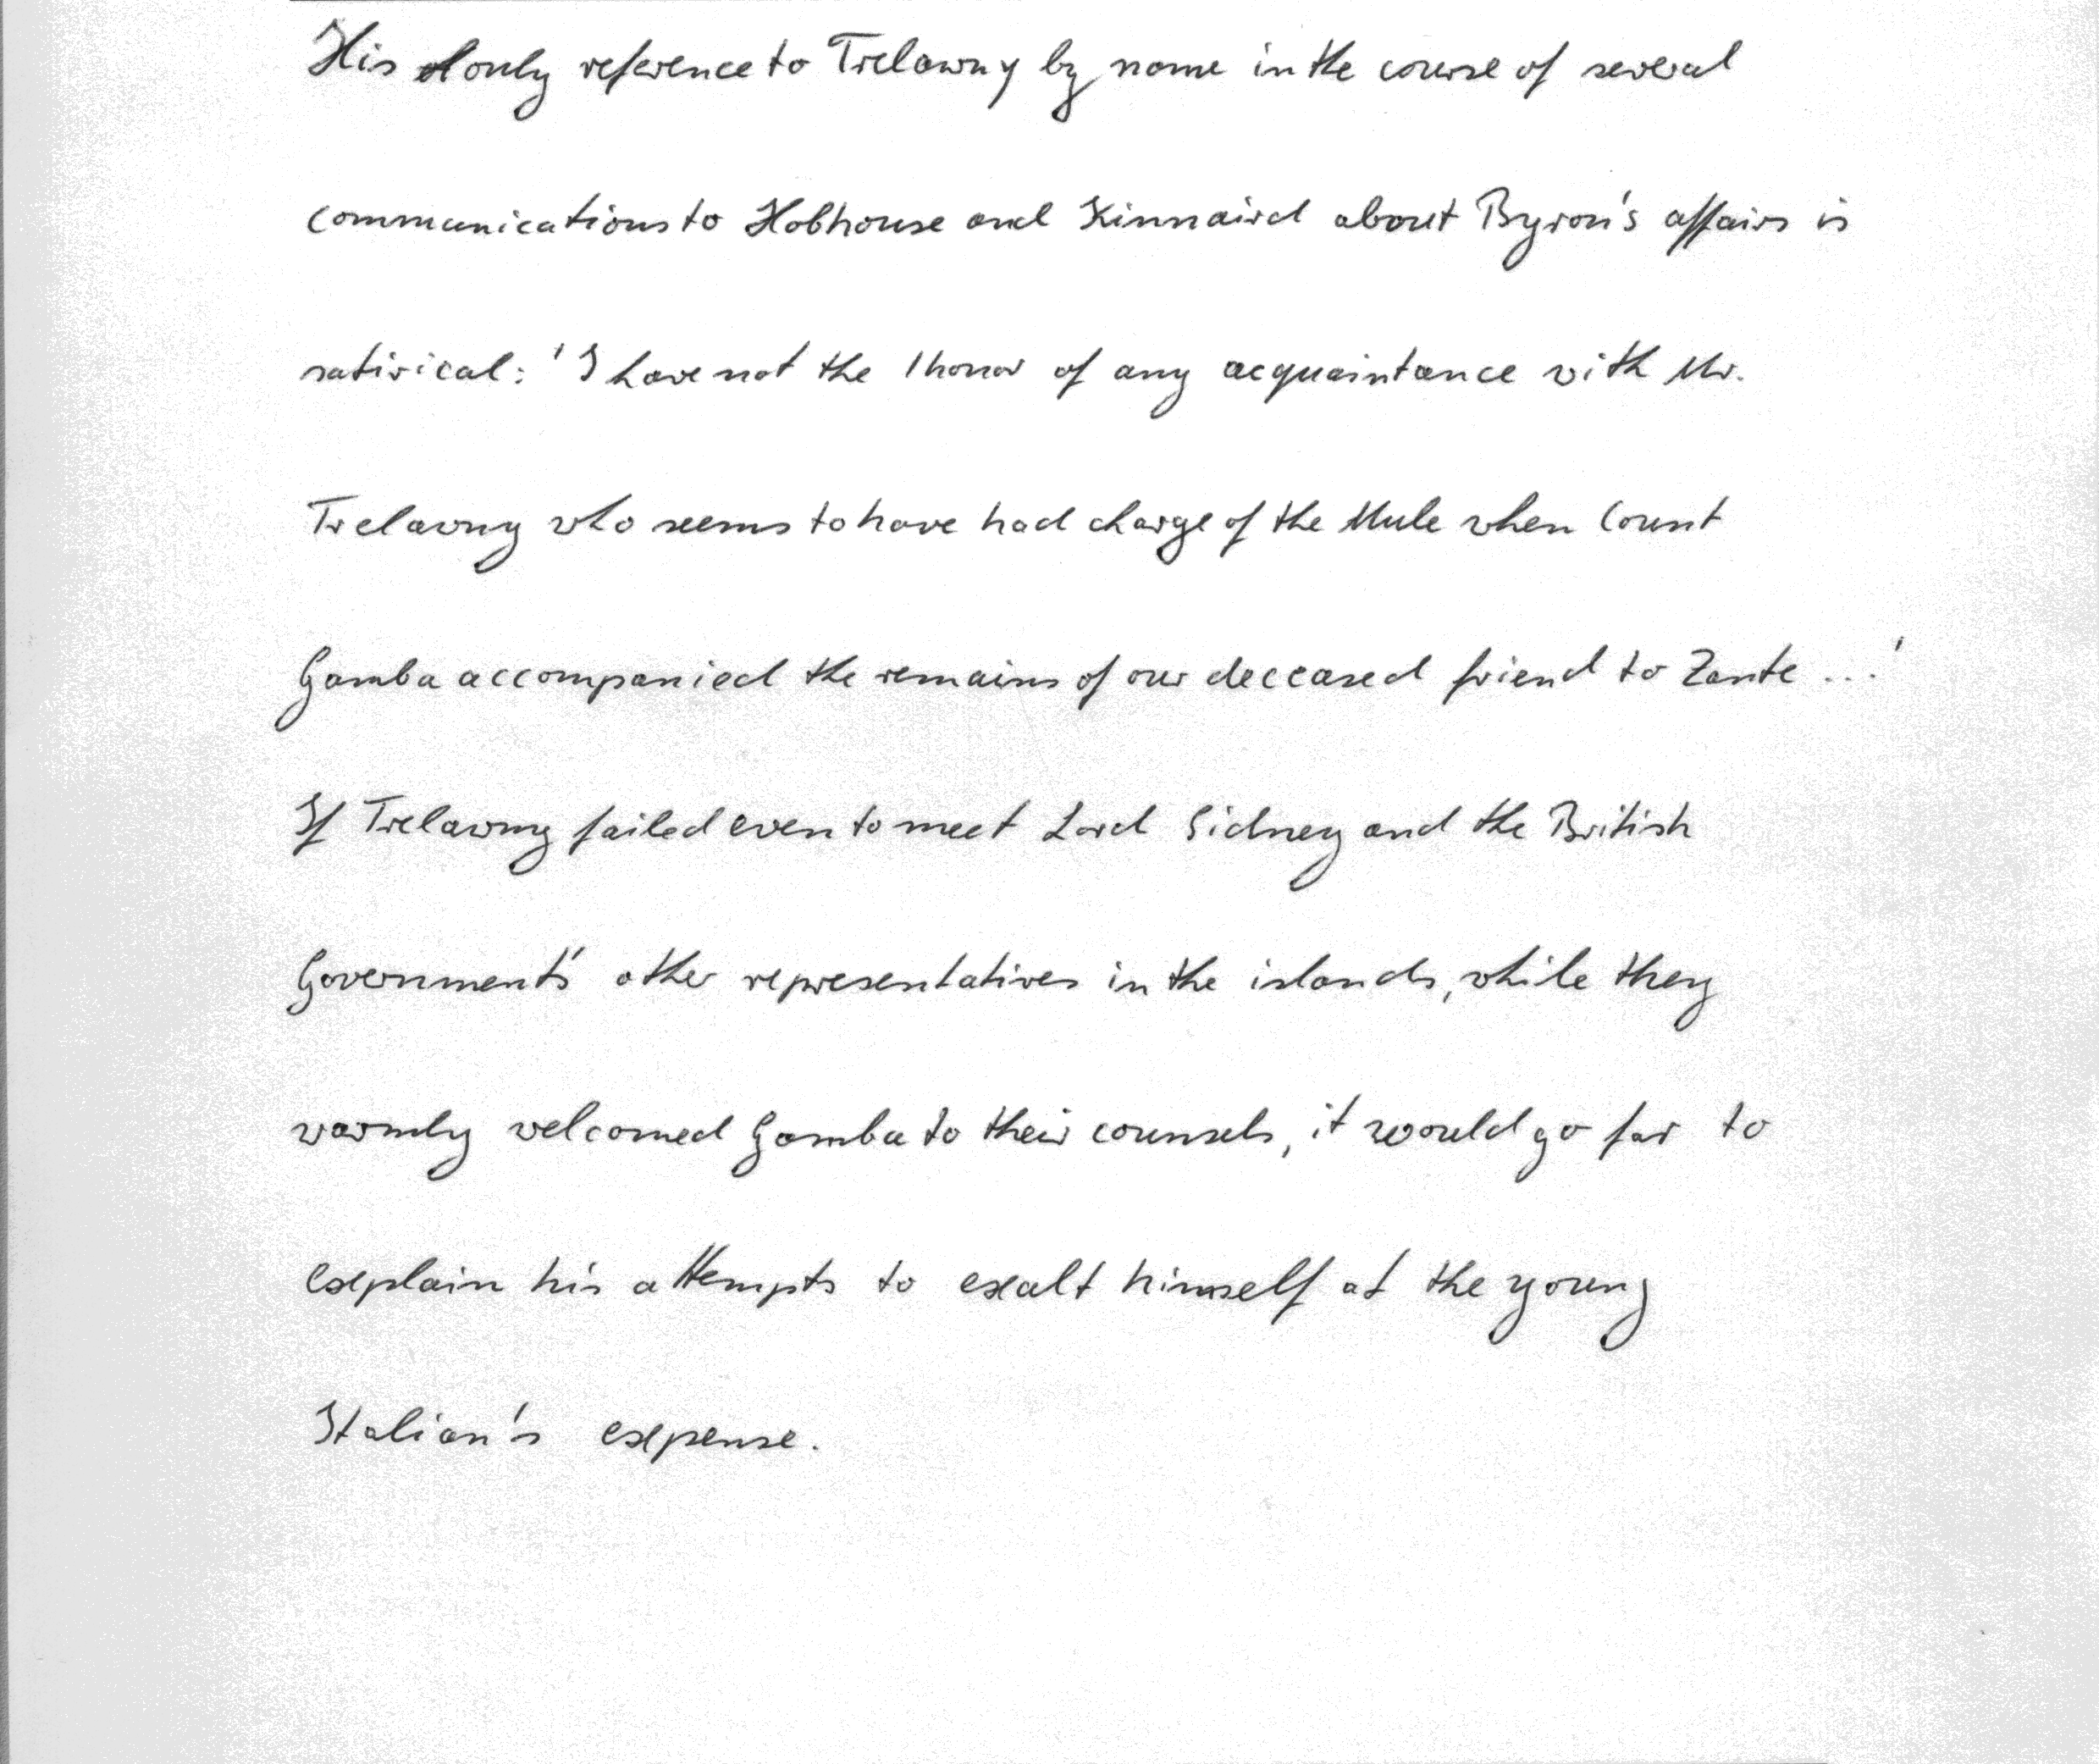 His only reference to Trelawny by name in the course of several
communications to Hobhouse and Kinnaird about Byron's affairs is
satirical: 'I have not the honor of any acquaintance with Mr.
Trelawny who seems to have had charge of the Mule when Count
Gamba accompanied the remains of our deceased friend to Zante ...'
If Trelawny failed even to meet Lord Sidney and the British
Government's other representatives in the islands, while they
warmly welcomed Gamba to their counsels, it would go far to
explain his attempts to exalt himself at the young
Italian's expense.